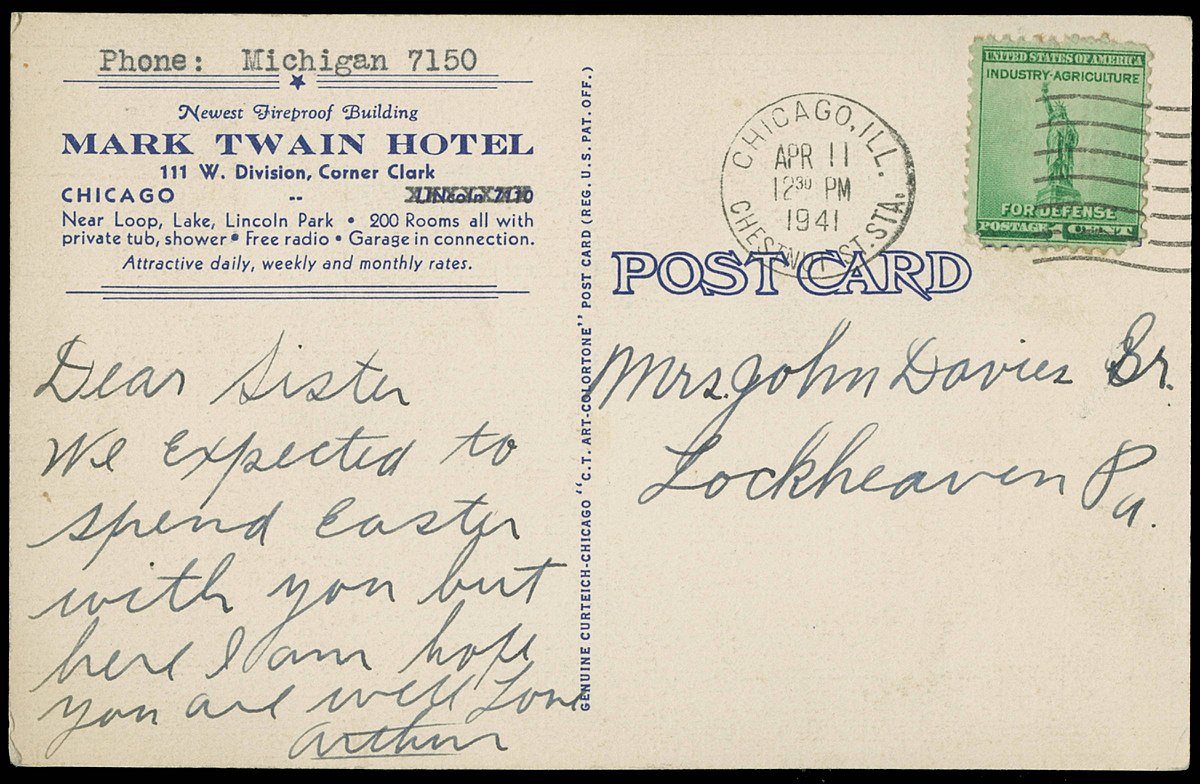 Phone: Michigan 7150
Newest Fireproof Building
MARK TWAIN HOTEL
111 W. Division, Corner Clark
CHICAGO --
Near Loop, Lake, Lincoln Park • 200 Rooms all with
private tub, shower • Free radio • Garage in connection.
Attractive daily, weekly and monthly rates.
Dear Sister
We Expected to
spend Easter
with you but
here I am hope
you are well Love
Arthur
GENUINE CURTEICH-CHICAGO "C.T. ART-COLORTONE" POST CARD (REG. U.S. PAT. OFF.)
CHICAGO, ILL.
APR 11
12 30 PM
1941
CHESTNUT ST. STA.
UNITED STATES OF AMERICA
INDUSTRY-AGRICULTURE
FOR DEFENSE
POSTAGE CENT
POST CARD
Mrs. John Davies Sr.
Lockheaven Pa.